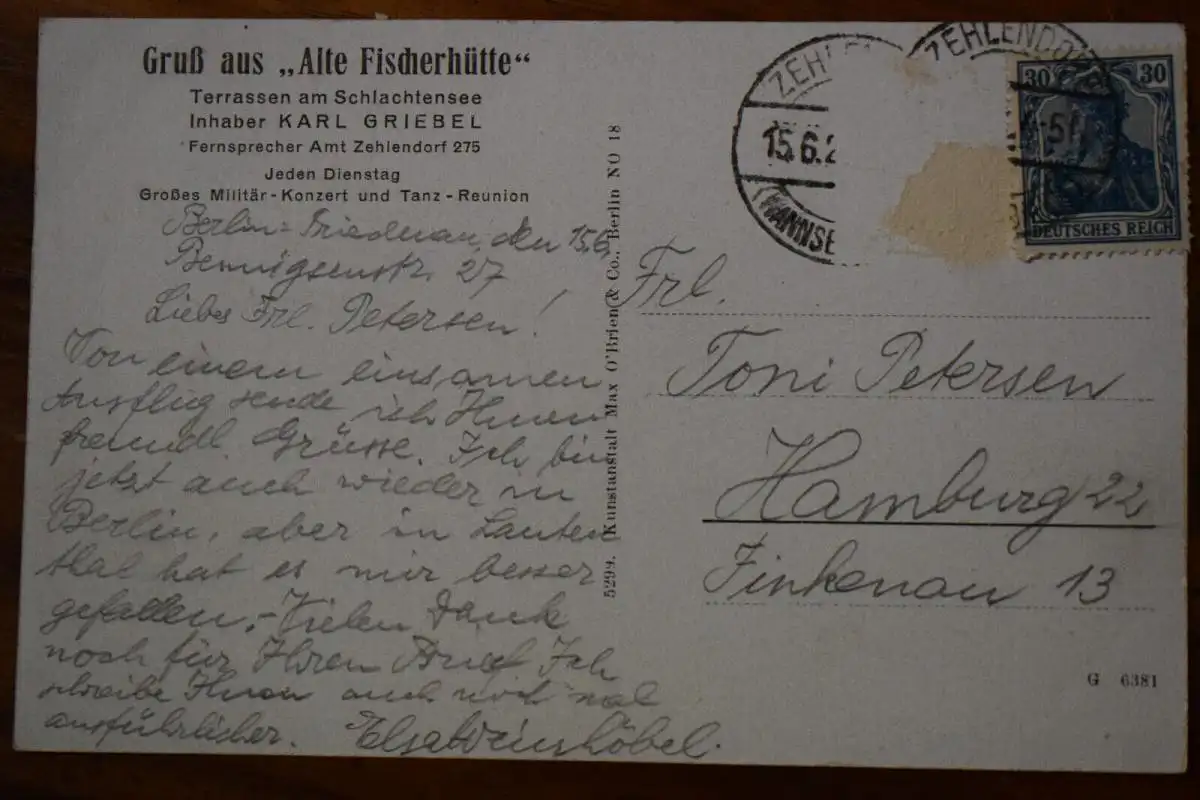 Gruß aus „Alte Fischerhütte“
Terrassen am Schlachtensee
Inhaber KARL GRIEBEL
Fernsprecher Amt Zehlendorf 275
Jeden Dienstag
Großes Militär-Konzert und Tanz-Reunion
Berlin-Friedenau, den 15.6.
Bennigsenstr. 27
Liebes Frl. Petersen!
Von einem einsamen
Ausflug sende ich Ihnen
freundl. Grüsse. Ich bin
jetzt auch wieder in
Berlin, aber in Lauten
thal hat es mir besser
gefallen.- Vielen Dank
noch für Ihren Brief Ich
schreibe Ihnen auch noch mal
ausführlicher.
5299. Kunstanstalt Max O'Brien & Co., Berlin NO 18
ZEHLE
15.6.2
(WANNSE
ZEHLENDO
-5
30 30
DEUTSCHES REICH
Frl.
Toni Petersen
Hamburg 22
Finkenau 13
G 6381